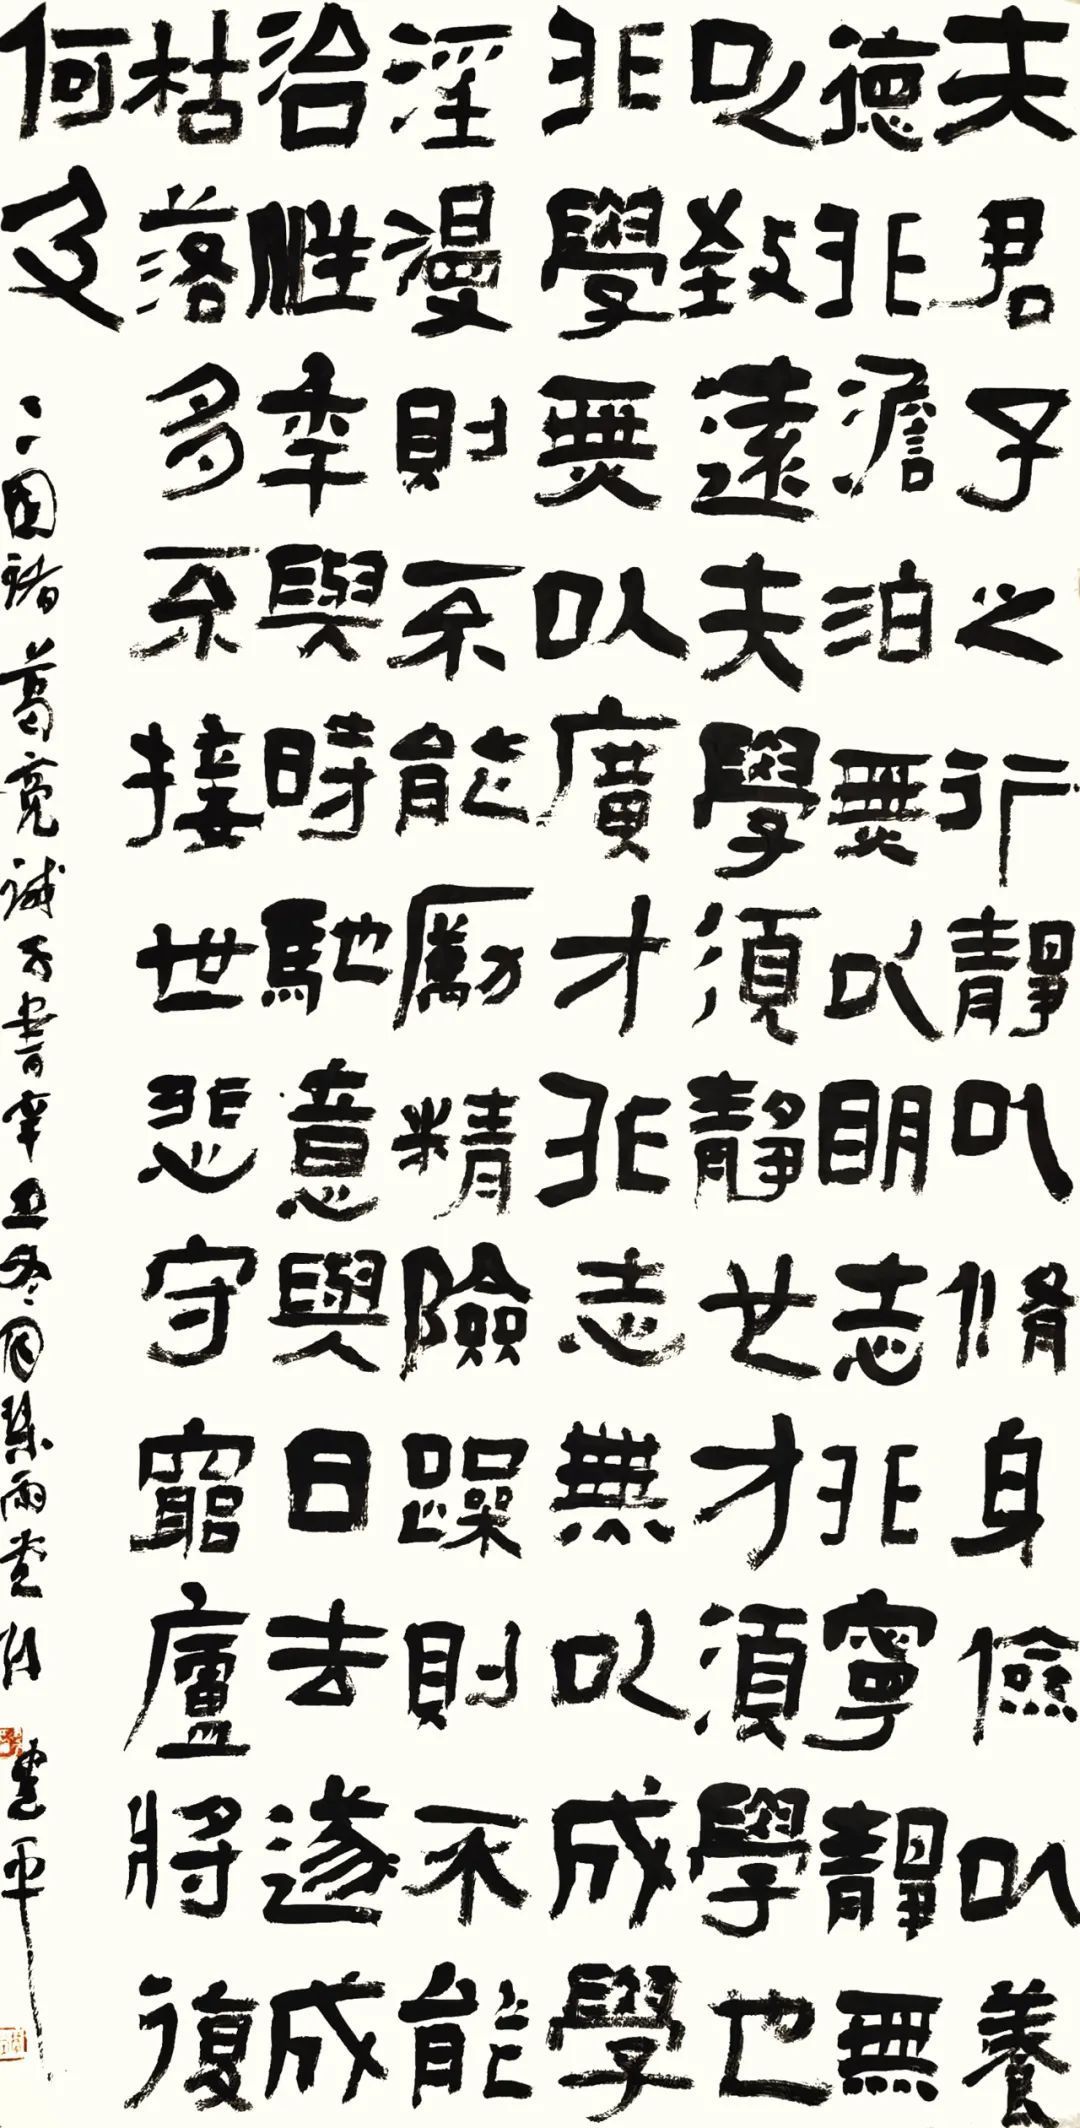 夫君子之行靜以脩身儉以養
德非澹泊無以明志非寧靜無
以致遠夫學須靜也才須學也
非學無以廣才非志無以成學
淫漫則不能勵精險躁則不能
治性年與時馳意與日去遂成
枯落多不接世悲守窮廬將復
何及
三國諸葛亮誡子書辛丑冬雨堂建平